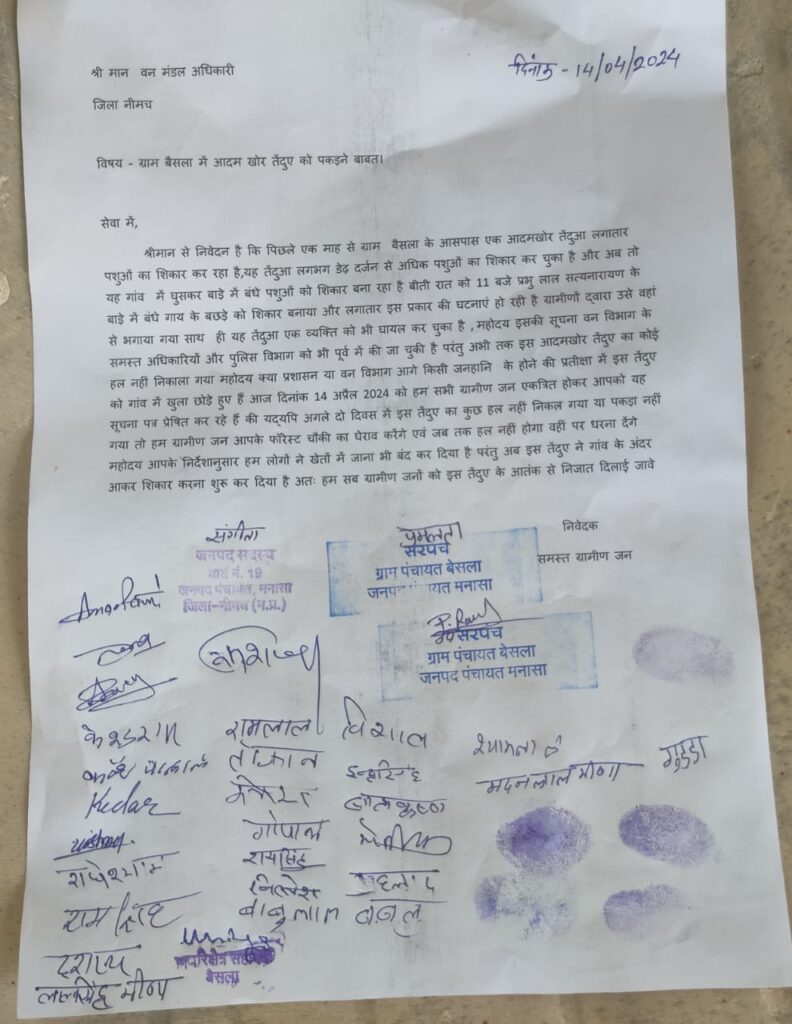 श्री मान वन मंडल अधिकारी
दिनांक - 14/04/2024
जिला नीमच
विषय - ग्राम बैसला में आदम खोर तेंदुए को पकड़ने बाबत।
सेवा में,
श्रीमान से निवेदन है कि पिछले एक माह से ग्राम बैसला के आसपास एक आदमखोर तेंदुआ लगातार
पशुओं का शिकार कर रहा है,यह तेंदुआ लगभग डेढ़ दर्जन से अधिक पशुओं का शिकार कर चुका है और अब तो
यह गांव में घुसकर बाड़े में बंधे पशुओं को शिकार बना रहा है बीती रात को 11 बजे प्रभु लाल सत्यनारायण के
बाड़े में बंधे गाय के बछड़े को शिकार बनाया और लगातार इस प्रकार की घटनाएं हो रही है ग्रामीणों द्वारा उसे वहां
से भगाया गया साथ ही यह तेंदुआ एक व्यक्ति को भी घायल कर चुका है , महोदय इसकी सूचना वन विभाग के
समस्त अधिकारियों और पुलिस विभाग को भी पूर्व में की जा चुकी है परंतु अभी तक इस आदमखोर तेंदुए का कोई
हल नहीं निकाला गया महोदय क्या प्रशासन या वन विभाग आगे किसी जनहानि के होने की प्रतीक्षा में इस तेंदुए
को गांव में खुला छोड़े हुए हैं आज दिनांक 14 अप्रैल 2024 को हम सभी ग्रामीण जन एकत्रित होकर आपको यह
सूचना पत्र प्रेषित कर रहे हैं की यद्यपि अगले दो दिवस में इस तेंदुए का कुछ हल नहीं निकल गया या पकड़ा नहीं
गया तो हम ग्रामीण जन आपके फॉरेस्ट चौकी का घेराव करेंगे एवं जब तक हल नहीं होगा वहीं पर धरना देंगे
महोदय आपके निर्देशानुसार हम लोगों ने खेतों में जाना भी बंद कर दिया है परंतु अब इस तेंदुए ने गांव के अंदर
आकर शिकार करना शुरू कर दिया है अतः हम सब ग्रामीण जनों को इस तेंदुए के आतंक से निजात दिलाई जावे
निवेदक
समस्त ग्रामीण जन
संगीता
जनपद सदस्य
वार्ड नं. 19
जनपद पंचायत, मनासा
जिला-नीमच (म.प्र.)
प्रेमलता
सरपंच
ग्राम पंचायत बेसला
जनपद पंचायत मनासा
P. Ravi
उप सरपंच
ग्राम पंचायत बेसला
जनपद पंचायत मनासा
रामलाल विशाल
मदनलाल मीणा गुड्डा
Kedar
गोपाल
राधेश्याम
रायसिंह
रामसिंह बाबुलाल
बेसला